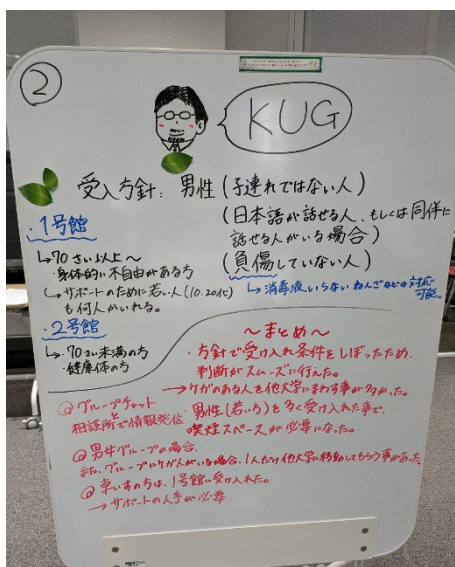 ②
KUG
受入方針: 男性 (子連れではない人)
(日本語が話せる人、もしくは同伴に
話せる人がいる場合)
(負傷していない人)
↳消毒液いらないねんざなどは対応
可能。
・1号館
↳70さい以上～
・身体的に不自由がある方
↳サポートのために若い人(10.20代)
も何人かいれる。
・2号館
↳・70さい未満の方
・健康体の方
～まとめ～
・方針で受け入れ条件をしぼったため、
判断がスムーズに行えた。
→ケガのある人を他大学にまわす事が多かった。
・男性(若い方)を多く受け入れた事で、
喫煙スペースが必要になった。
@グループチャット
と
相談所で情報発信
@男女グループの場合、
また、グループにケガ人がいる場合、1人だけ他大学に移動してもらう事があった。
@車いすの方は、1号館に受け入れた。
→サポートの人手が必要